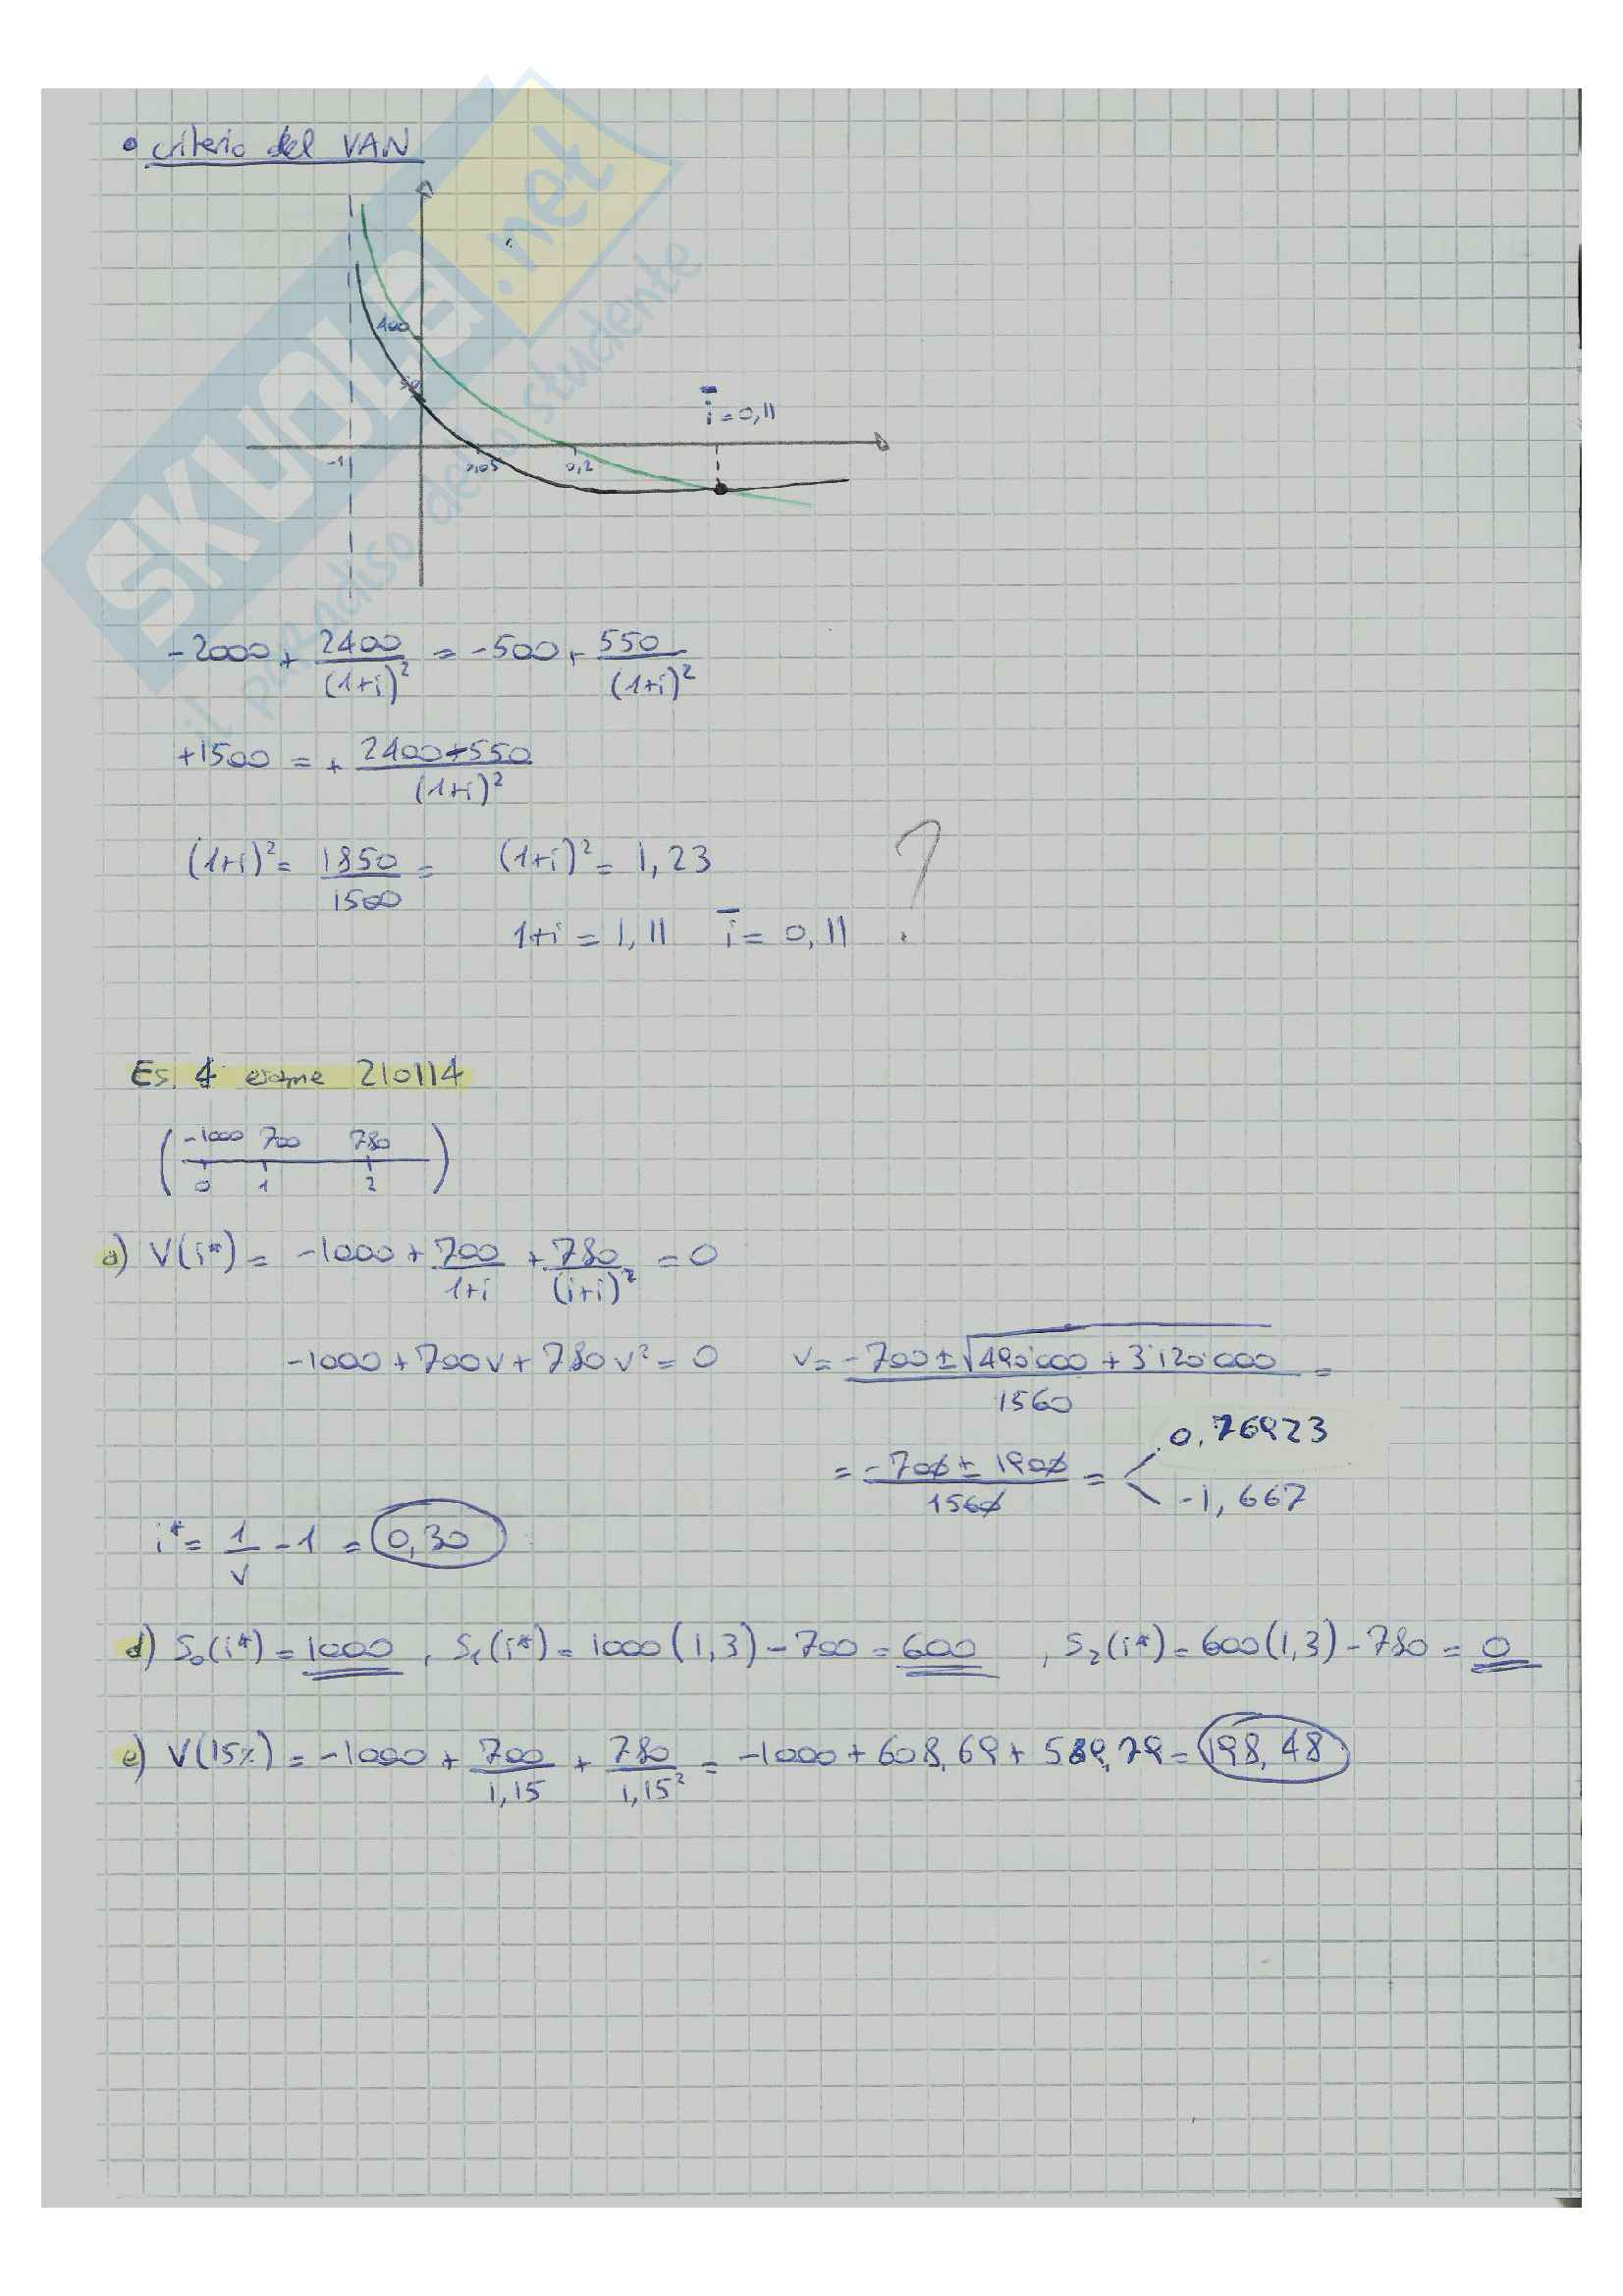 • criterio del VAN
SKUOLA.net
il paradiso dello studente
400
50
i̅ = 0,11
-1
0,05
0,2
-2000 + 2400/(1+i)² = -500 + 550/(1+i)²
+1500 = + (2400-550)/(1+i)²
(1+i)² = 1850/1500 = (1+i)² = 1,23 ?
1+i = 1,11 i̅ = 0,11
Es. 4 esame 210114
-1000 700 780
0 1 2
a) V(i*) = -1000 + 700/1+i + 780/(i+i)² = 0
-1000 + 700v + 780v² = 0 v = (-700 ± √490'000 + 3'120'000)/1560 =
= (-700 ± 1900)/1560 = 0,76923
-1,667
i* = 1/v - 1 = 0,30
d) S₀(i*) = 1000, S₁(i*) = 1000(1,3) - 700 = 600, S₂(i*) = 600(1,3) - 780 = 0
e) V(15%) = -1000 + 700/1,15 + 780/1,15² = -1000 + 608,69 + 589,79 = 198,48